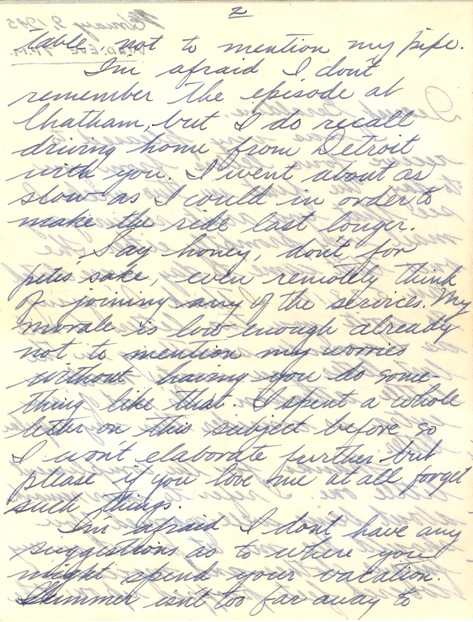 2
table, not to mention my pipe.
I'm afraid I don't
remember the episode at
Chatham, but I do recall
driving home from Detroit
with you. I went about as
slow as I could in order to
make the ride last longer.
Say honey, don't for
petes sake even remotely think
of joining any of the services. My
morale is low enough already
not to mention my worries
without having you do some-
thing like that. I spent a whole
letter on this subject before so
I wont elaborate further but
please if you love me at all forget
such things.
I'm afraid I dont have any
suggestions as to where you
might spend your vacation.
Summer isnt too far away to